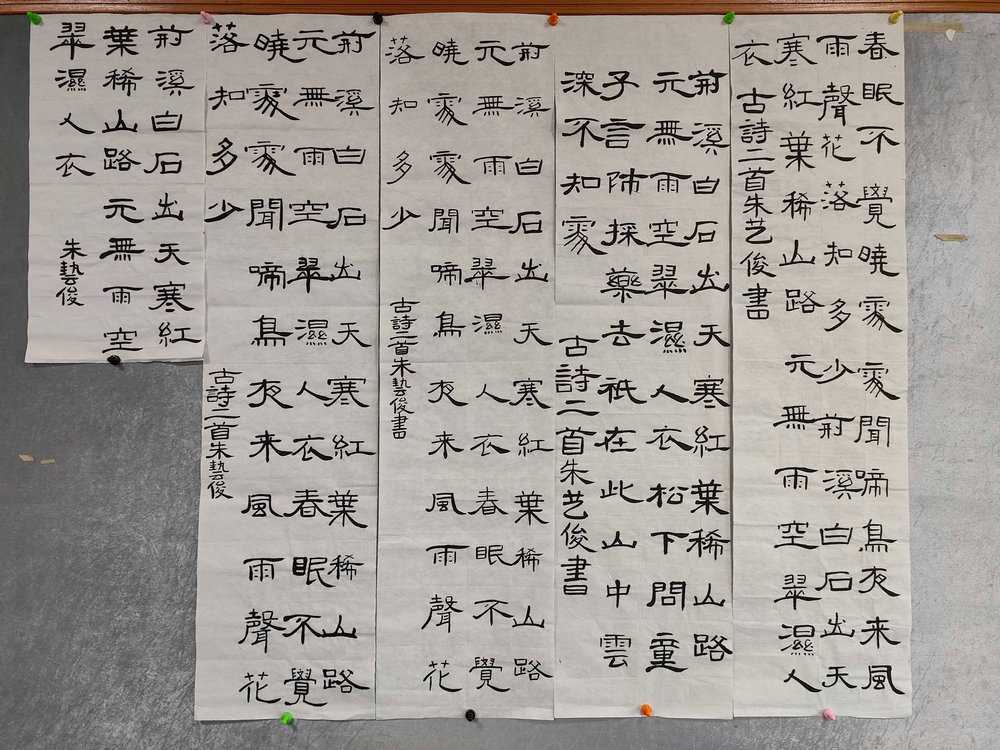 春眠不覺曉處處聞啼鳥夜來風
雨聲花落知多少荊溪白石出天
寒紅葉稀山路元無雨空翠濕人
衣
古詩二首朱艺俊書
荊溪白石出天寒紅葉稀山路
元無雨空翠濕人衣松下問童
子言師採藥去衹在此山中雲
深不知處
古詩二首朱艺俊書
荊溪白石出天寒紅葉稀山路
元無雨空翠濕人衣春眠不覺
曉處處聞啼鳥夜來風雨聲花
落知多少
古詩二首朱藝俊書
荊溪白石出天寒紅葉稀山路
元無雨空翠濕人衣春眠不覺
曉處處聞啼鳥夜來風雨聲花
落知多少
古詩二首朱藝俊
荊溪白石出天寒紅
葉稀山路元無雨空
翠濕人衣
朱藝俊